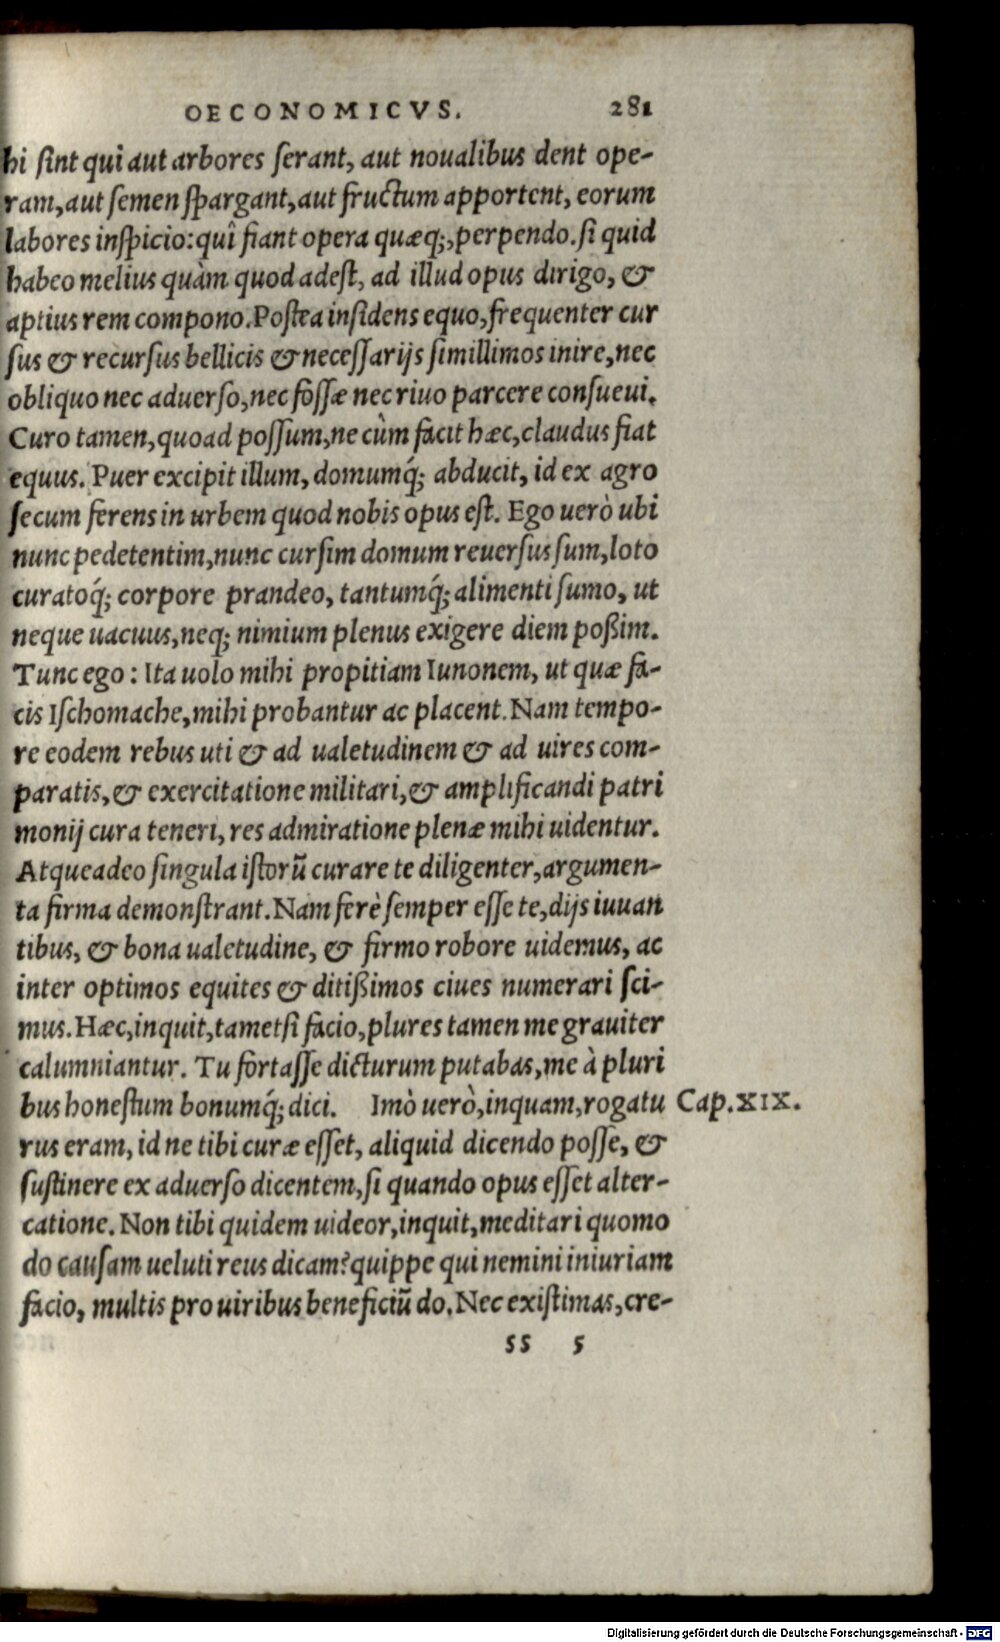 OECONOMICVS. 281
hi sint qui aut arbores serant, aut noualibus dent ope-
ram, aut semen spargant, aut fructum apportent, eorum
labores inspicio: quî fiant opera quæq;, perpendo. si quid
habeo melius quàm quod adest, ad illud opus dirigo, &
aptius rem compono. Postea insidens equo, frequenter cur
sus & recursus bellicis & necessarijs simillimos inire, nec
obliquo nec aduerso, nec fossæ nec riuo parcere consueui.
Curo tamen, quoad possum, ne cùm facit hæc, claudus fiat
equus. Puer excipit illum, domumq́; abducit, id ex agro
secum ferens in urbem quod nobis opus est. Ego uerò ubi
nunc pedetentim, nunc cursim domum reuersus sum, loto
curatoq́; corpore prandeo, tantumq́; alimenti sumo, ut
neque uacuus, neq; nimium plenus exigere diem poßim.
Tunc ego: Ita uolo mihi propitiam Iunonem, ut quæ fa-
cis Ischomache, mihi probantur ac placent. Nam tempo-
re eodem rebus uti & ad ualetudinem & ad uires com-
paratis, & exercitatione militari, & amplificandi patri
monij cura teneri, res admiratione plenæ mihi uidentur.
Atqueadeo singula istorū curare te diligenter, argumen-
ta firma demonstrant. Nam ferè semper esse te, dijs iuuan
tibus, & bona ualetudine, & firmo robore uidemus, ac
inter optimos equites & ditißimos ciues numerari sci-
mus. Hæc, inquit, tametsi facio, plures tamen me grauiter
calumniantur. Tu fortasse dicturum putabas, me à pluri
bus honestum bonumq́; dici. Imò uerò, inquam, rogatu Cap. XIX.
rus eram, id ne tibi curæ esset, aliquid dicendo posse, &
sustinere ex aduerso dicentem, si quando opus esset alter-
catione. Non tibi quidem uideor, inquit, meditari quomo
do causam ueluti reus dicam? quippe qui nemini iniuriam
facio, multis pro uiribus beneficiū do. Nec existimas, cre-
ss 5
Digitalisierung gefördert durch die Deutsche Forschungsgemeinschaft - DFG